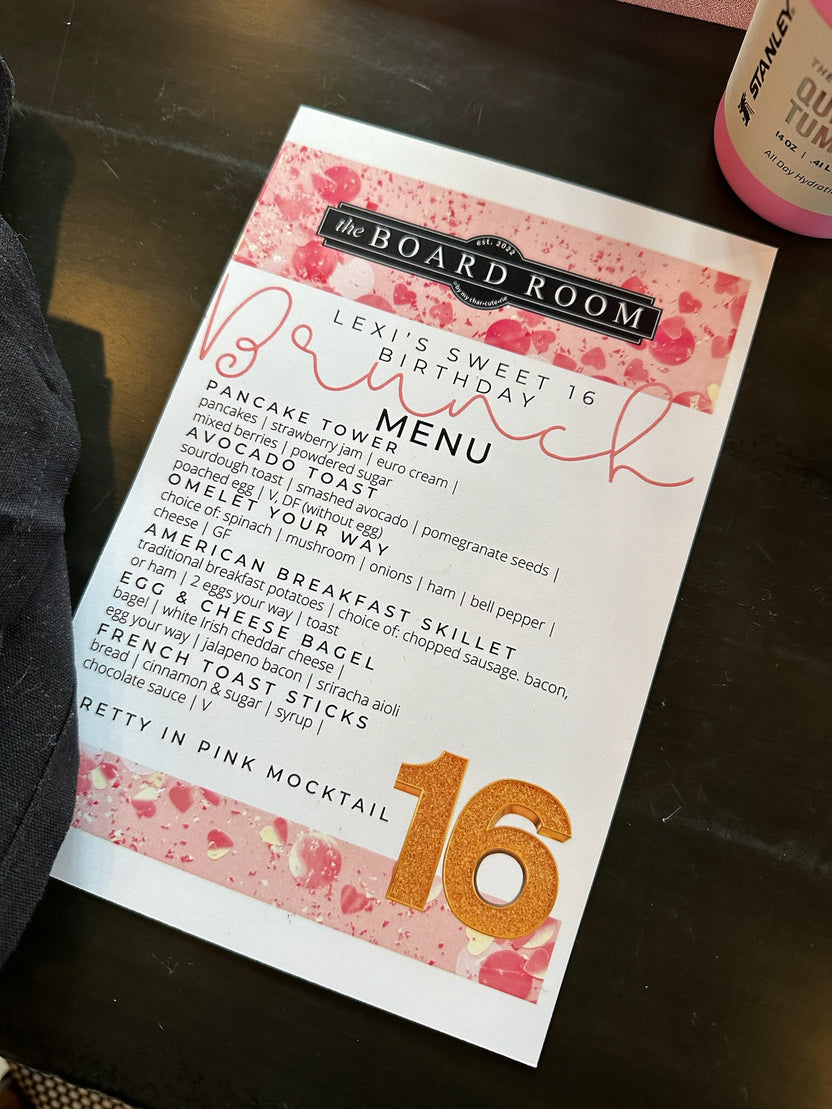 STANLEY
TH
QU
TUM
14 OZ | .41 L
All Day Hydrati
est. 2022
the BOARD ROOM
by my char•cute•rie
LEXI'S SWEET 16
BIRTHDAY
Brunch
MENU
PANCAKE TOWER
pancakes | strawberry jam | euro cream |
mixed berries | powdered sugar
AVOCADO TOAST
sourdough toast | smashed avocado | pomegranate seeds |
poached egg | V, DF (without egg)
OMELET YOUR WAY
choice of: spinach | mushroom | onions | ham | bell pepper |
cheese | GF
AMERICAN BREAKFAST SKILLET
traditional breakfast potatoes | choice of: chopped sausage. bacon,
or ham | 2 eggs your way | toast
EGG & CHEESE BAGEL
bagel | white Irish cheddar cheese |
egg your way | jalapeno bacon | sriracha aioli
FRENCH TOAST STICKS
bread | cinnamon & sugar | syrup |
chocolate sauce | V
RETTY IN PINK MOCKTAIL
16